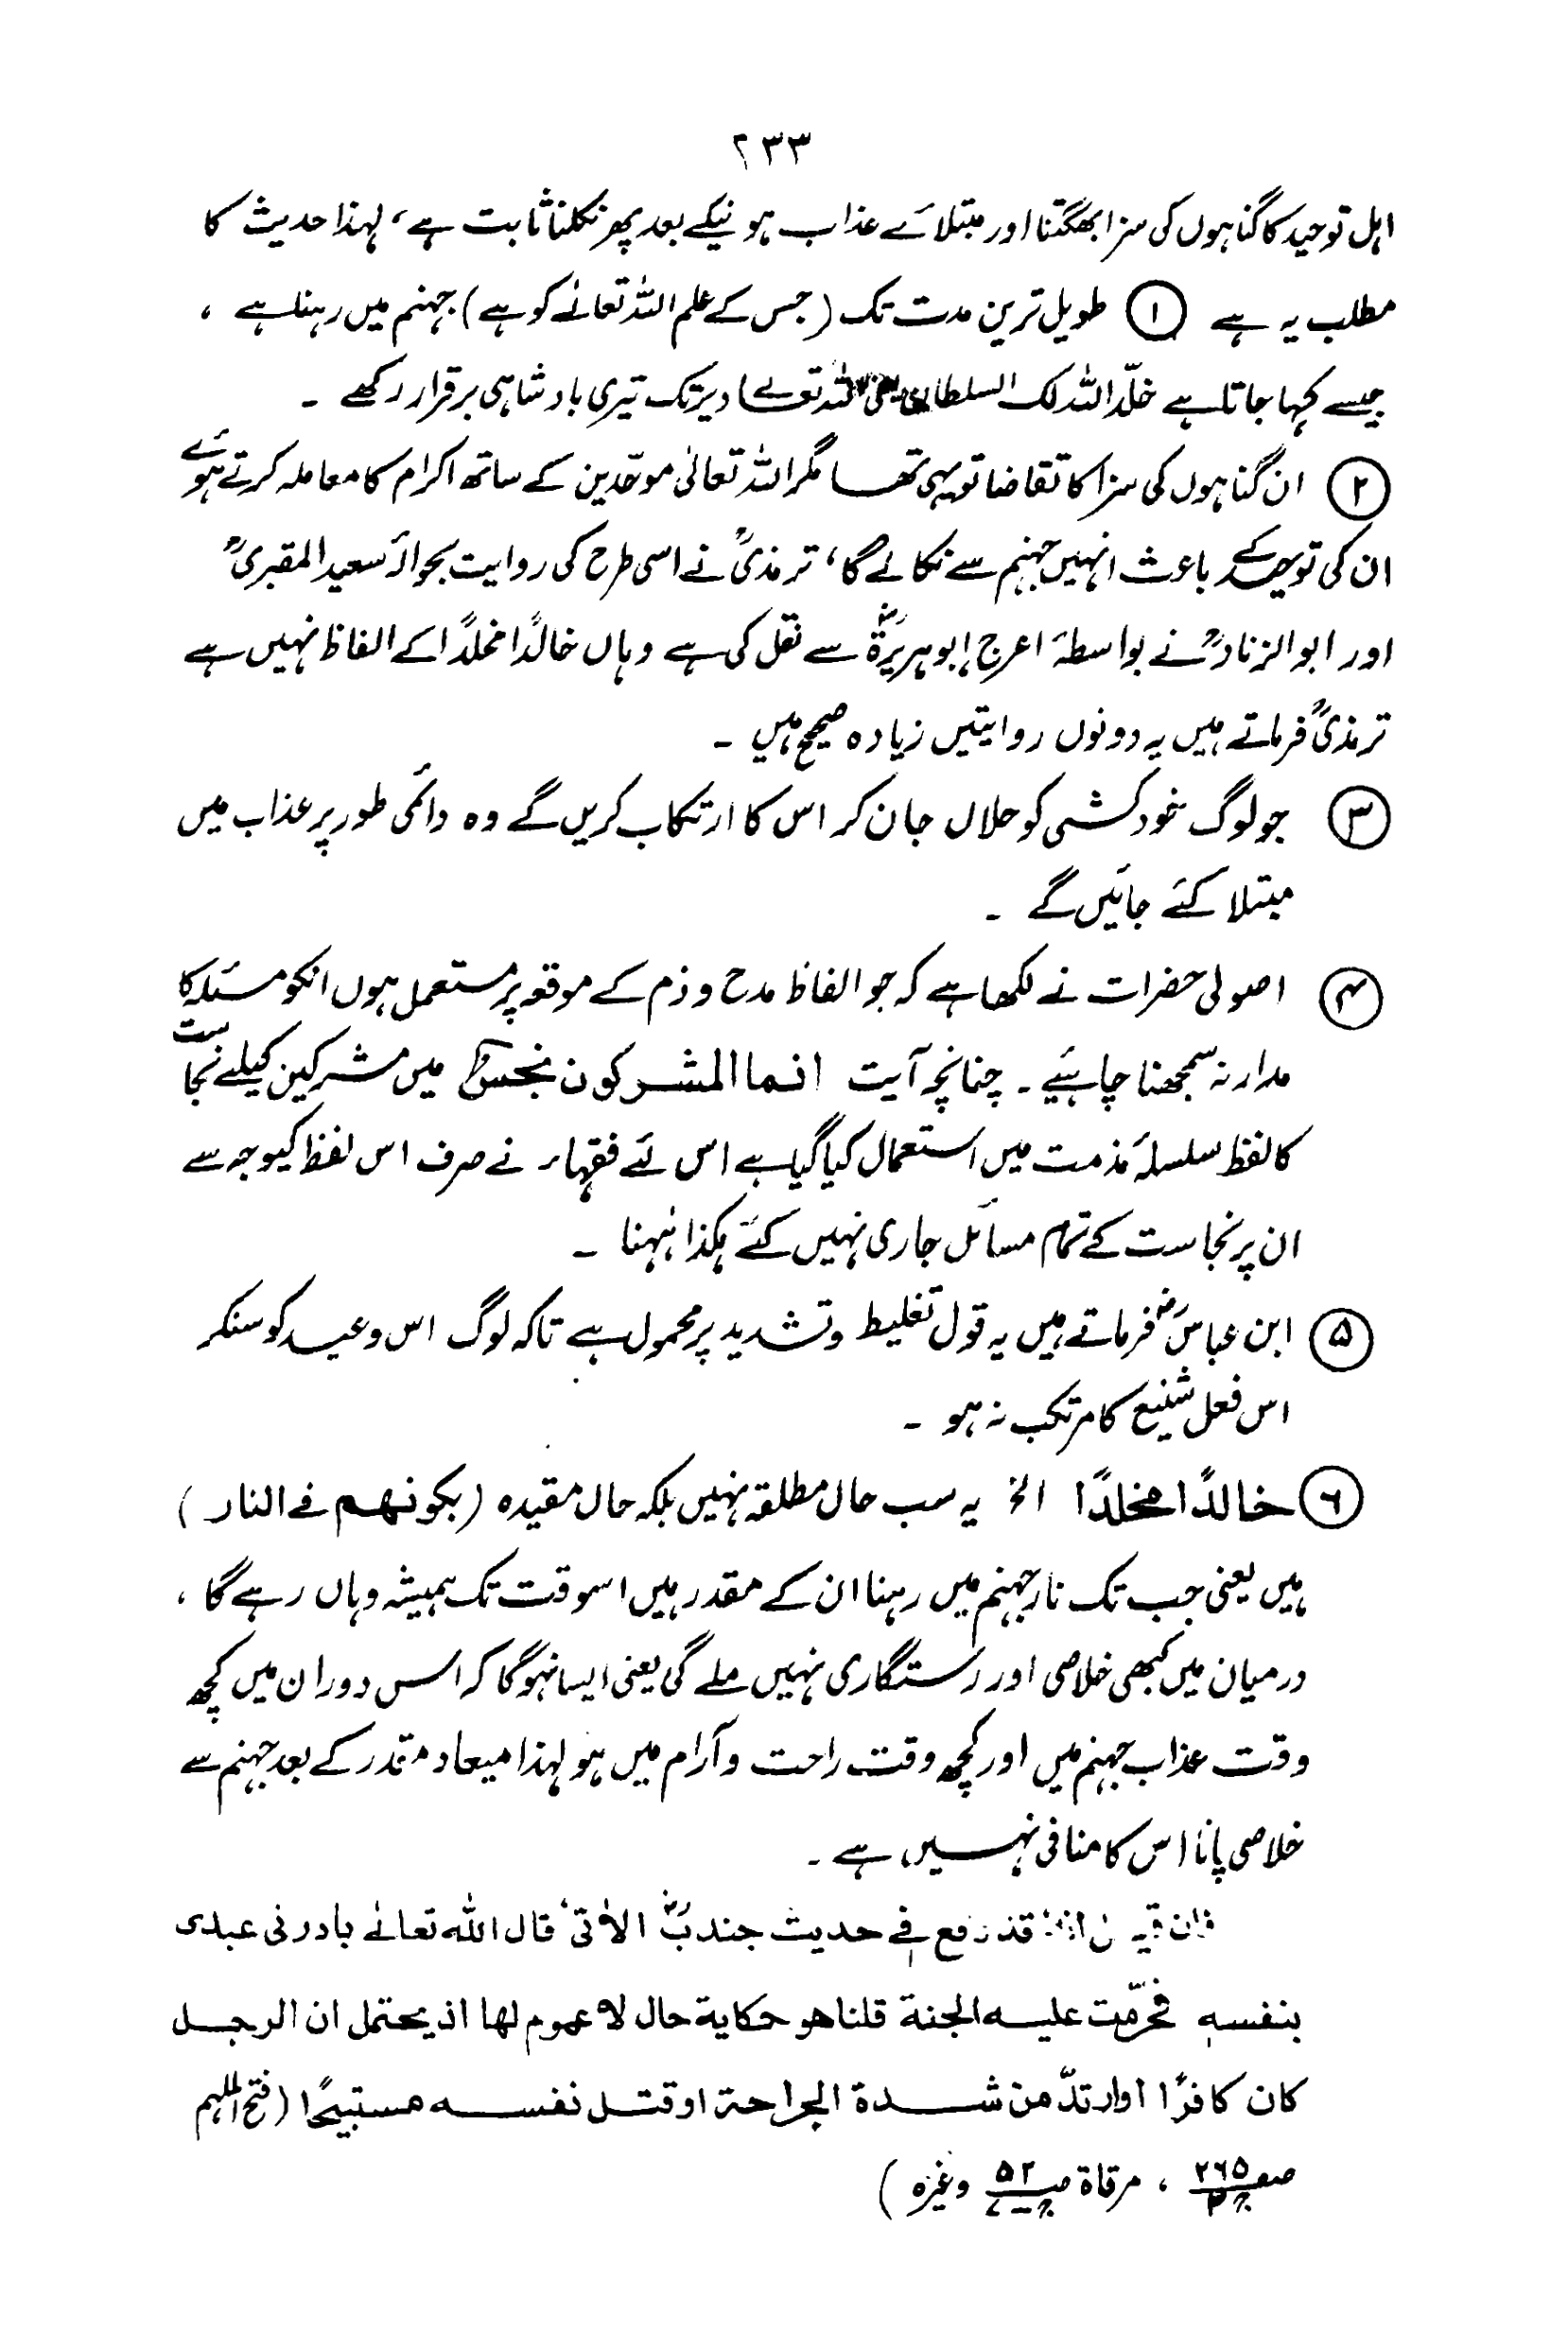 ۲۳۳
اہل توحید کا گناہوں کی سزا بھگتنا اور مبتلائے عذاب ہونیکے بعد پھر نکلنا ثابت ہے، لہذا حدیث کا
مطلب یہ ہے ① طویل ترین مدت تک (جس کے علم اللہ تعالے کو ہے) جہنم میں رہنا ہے ،
جیسے کہا جاتا ہے خلّد اللہ لک السلطان یعنی اللہ تعالے دیر تک تیری بادشاہی برقرار رکھے ۔
② ان گناہوں کی سزا کا تقاضا تو یہی تھا مگر اللہ تعالیٰ موحّدین کے ساتھ اکرام کا معاملہ کرتے ہوئے
ان کی توحید کے باعث انہیں جہنم سے نکالے گا، ترمذیؒ نے اسی طرح کی روایت بحوالۂ سعید المقبریؒ
اور ابو الزنادؒ نے بواسطۂ اعرج ابوہریرۃؓ سے نقل کی ہے وہاں خالدًا مخلدًا کے الفاظ نہیں ہے
ترمذیؒ فرماتے ہیں یہ دونوں روایتیں زیادہ صحیح ہیں ۔
③ جو لوگ خودکشی کو حلال جان کر اس کا ارتکاب کریں گے وہ دائمی طور پر عذاب میں
مبتلا کئے جائیں گے ۔
④ اصولی حضرات نے لکھا ہے کہ جو الفاظ مدح و ذم کے موقعہ پر مستعمل ہوں انکو مسئلہ کا
مدار نہ سمجھنا چاہئیے ۔ چنانچہ آیت انما المشرکون نجسٌ میں مشرکین کیلئے نجاست
کا لفظ سلسلۂ مذمت میں استعمال کیا گیا ہے اس لئے فقہاء نے صرف اس لفظ کیوجہ سے
ان پر نجاست کے تمام مسائل جاری نہیں کئے ہکذا ہٰہنا ۔
⑤ ابن عباسؓ فرماتے ہیں یہ قول تغلیط و تشدید پر محمول ہے تاکہ لوگ اس وعید کو سنکر
اس فعل شنیع کا مرتکب نہ ہو ۔
⑥ خالدًا مخلدًا الخ یہ سب حال مطلقہ نہیں بلکہ حال مقیدہ (بکونهم فے النار )
ہیں یعنی جب تک نار جہنم میں رہنا ان کے مقدر ہیں اسوقت تک ہمیشہ وہاں رہے گا ،
درمیان میں کبھی خلاصی اور رستگاری نہیں ملے گی یعنی ایسا نہوگا کہ اس دوران میں کچھ
وقت عذاب جہنم میں اور کچھ وقت راحت و آرام میں ہو لہذا میعاد مقدر کے بعد جہنم سے
خلاصی پانا اس کا منافی نہیں ہے ۔
فان قیل قد فے حدیث جندبؓ الآتی قال اللہ تعالے بادرنی عبدی
بنفسہ فحرّمت علیہ الجنة قلنا هو حکایة حال لا عموم لها اذ یحتمل ان الرجل
کان کافرًا او ارتدّ من شدة الجراحة او قتل نفسہ مستبیحًا (فتح الملہم
صفحہ ۲۶۵ ، مرقاة صـ ۵۲ وغیرہ )